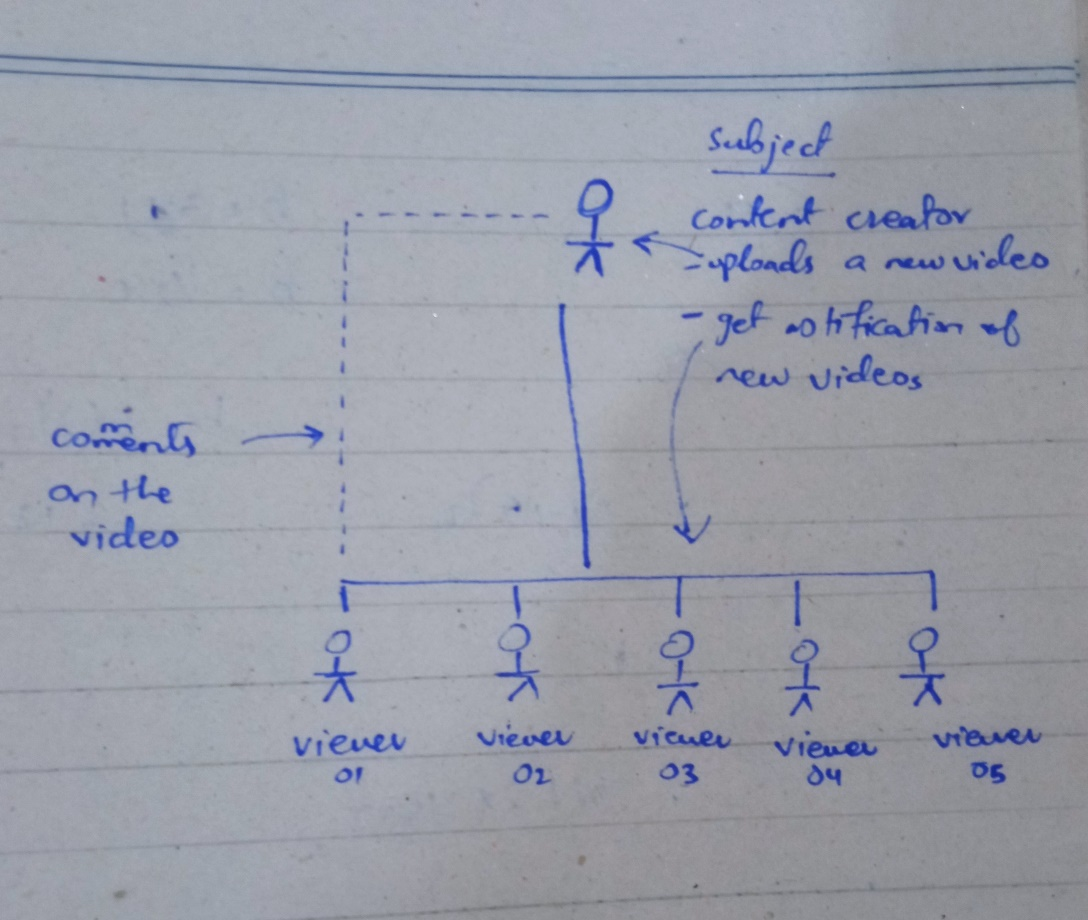 subject
content creator
- uploads a new video
- get notification of
new videos
coments
on the
video
viewer viewer viewer viewer viewer
01 02 03 04 05